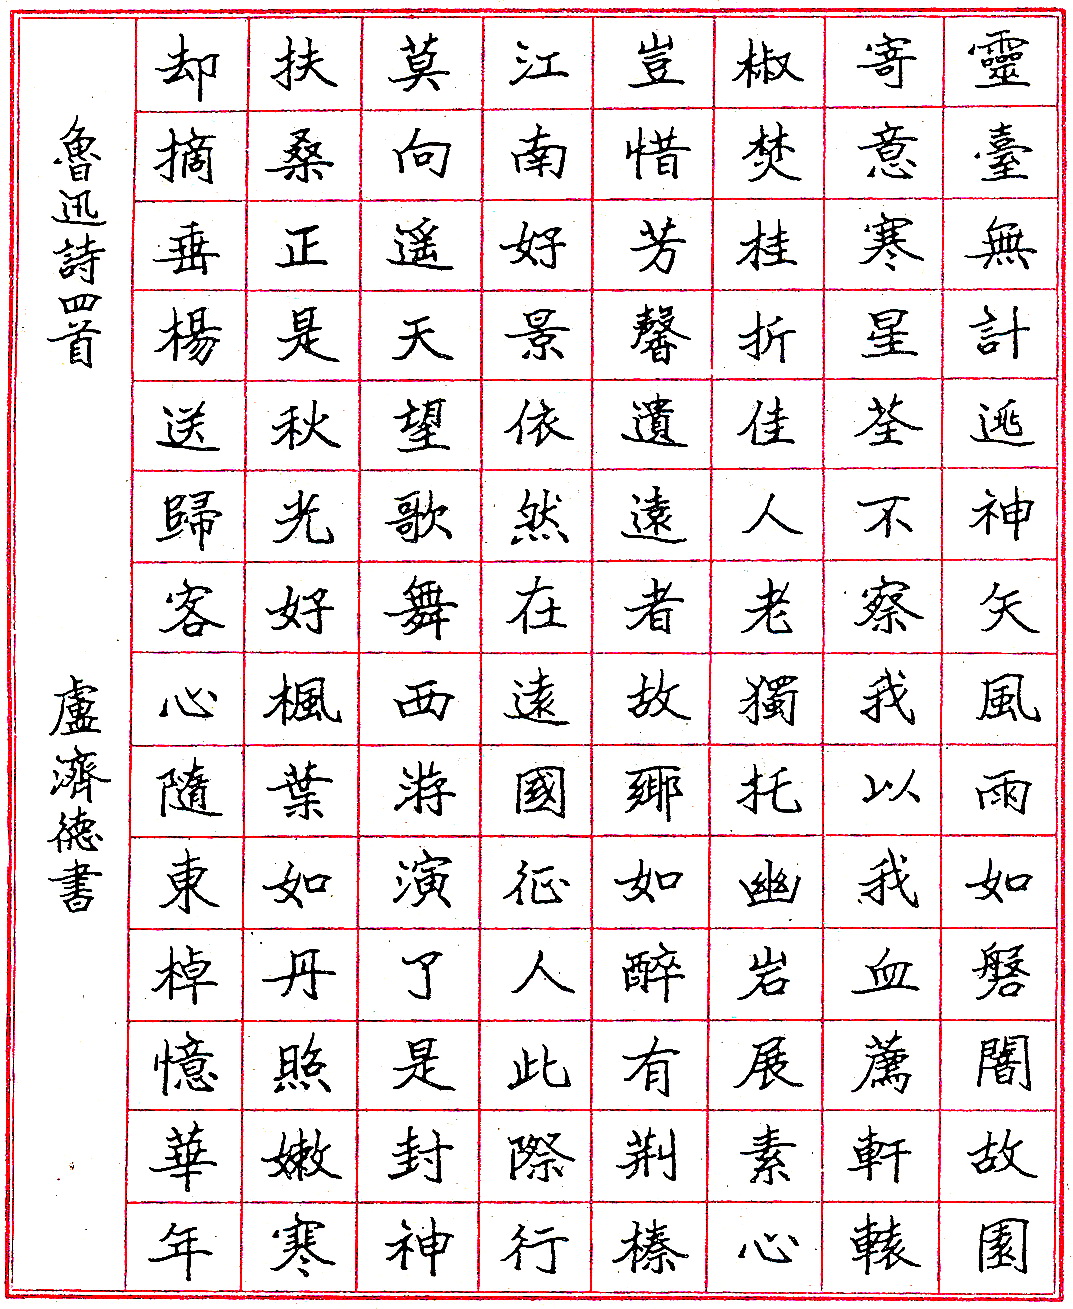 靈臺無計逃神矢風雨如磐闇故園
寄意寒星荃不察我以我血薦軒轅
椒焚桂折佳人老獨托幽岩展素心
豈惜芳馨遺遠者故鄉如醉有荆榛
江南好景依然在遠國征人此際行
莫向遥天望歌舞西游演了是封神
扶桑正是秋光好楓葉如丹照嫩寒
却摘垂楊送歸客心隨東棹憶華年
魯迅詩四首
盧濟德書